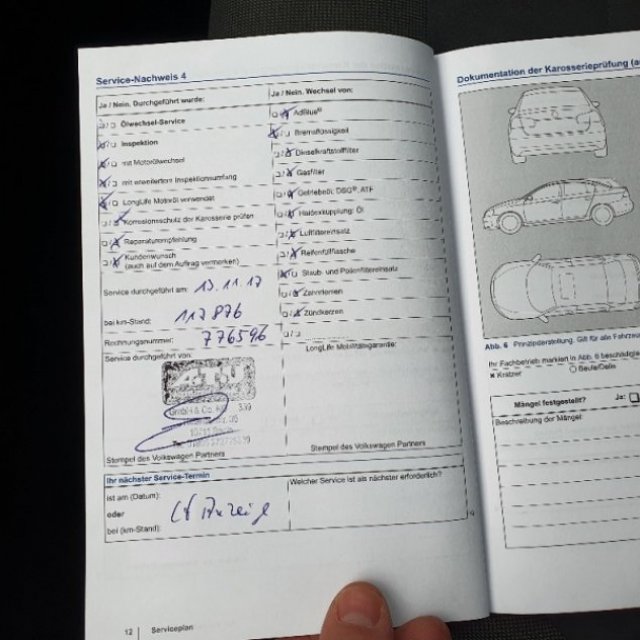 Service-Nachweis 4
Ja / Nein. Durchgeführt wurde:
Ölwechsel-Service
Inspektion
mit Motorölwechsel
mit erweitertem Inspektionsumfang
LongLife Motoröl verwendet
Korrosionsschutz der Karosserie prüfen
Reparaturempfehlung
Kundenwunsch
(auch auf dem Auftrag vermerken)
Service durchgeführt am: 13.11.17
bei km-Stand: 117876
Rechnungsnummer: 776596
Service durchgeführt von:
ATU
GmbH & Co.
Stempel des Volkswagen Partners
Ja / Nein. Wechsel von:
AdBlue®
Bremsflüssigkeit
Dieselkraftstofffilter
Gasfilter
Getriebeöl: DSG®, ATF
Haldexkupplung: Öl
Luftfiltereinsatz
Reifenfüllflasche
Staub- und Pollenfiltereinsatz
Zahnriemen
Zündkerzen
LongLife Mobilitätsgarantie:
Stempel des Volkswagen Partners
Ihr nächster Service-Termin
ist am (Datum):
oder
bei (km-Stand):
Lt Anzeige
Welcher Service ist als nächster erforderlich?
12 | Serviceplan
Dokumentation der Karosserieprüfung
Abb. 6 Prinzipdarstellung. Gilt für alle
Ihr Fachbetrieb markiert in Abb. 6
x Kratzer
O Beule/Delle
Mängel festgestellt? Ja:
Beschreibung der Mängel: